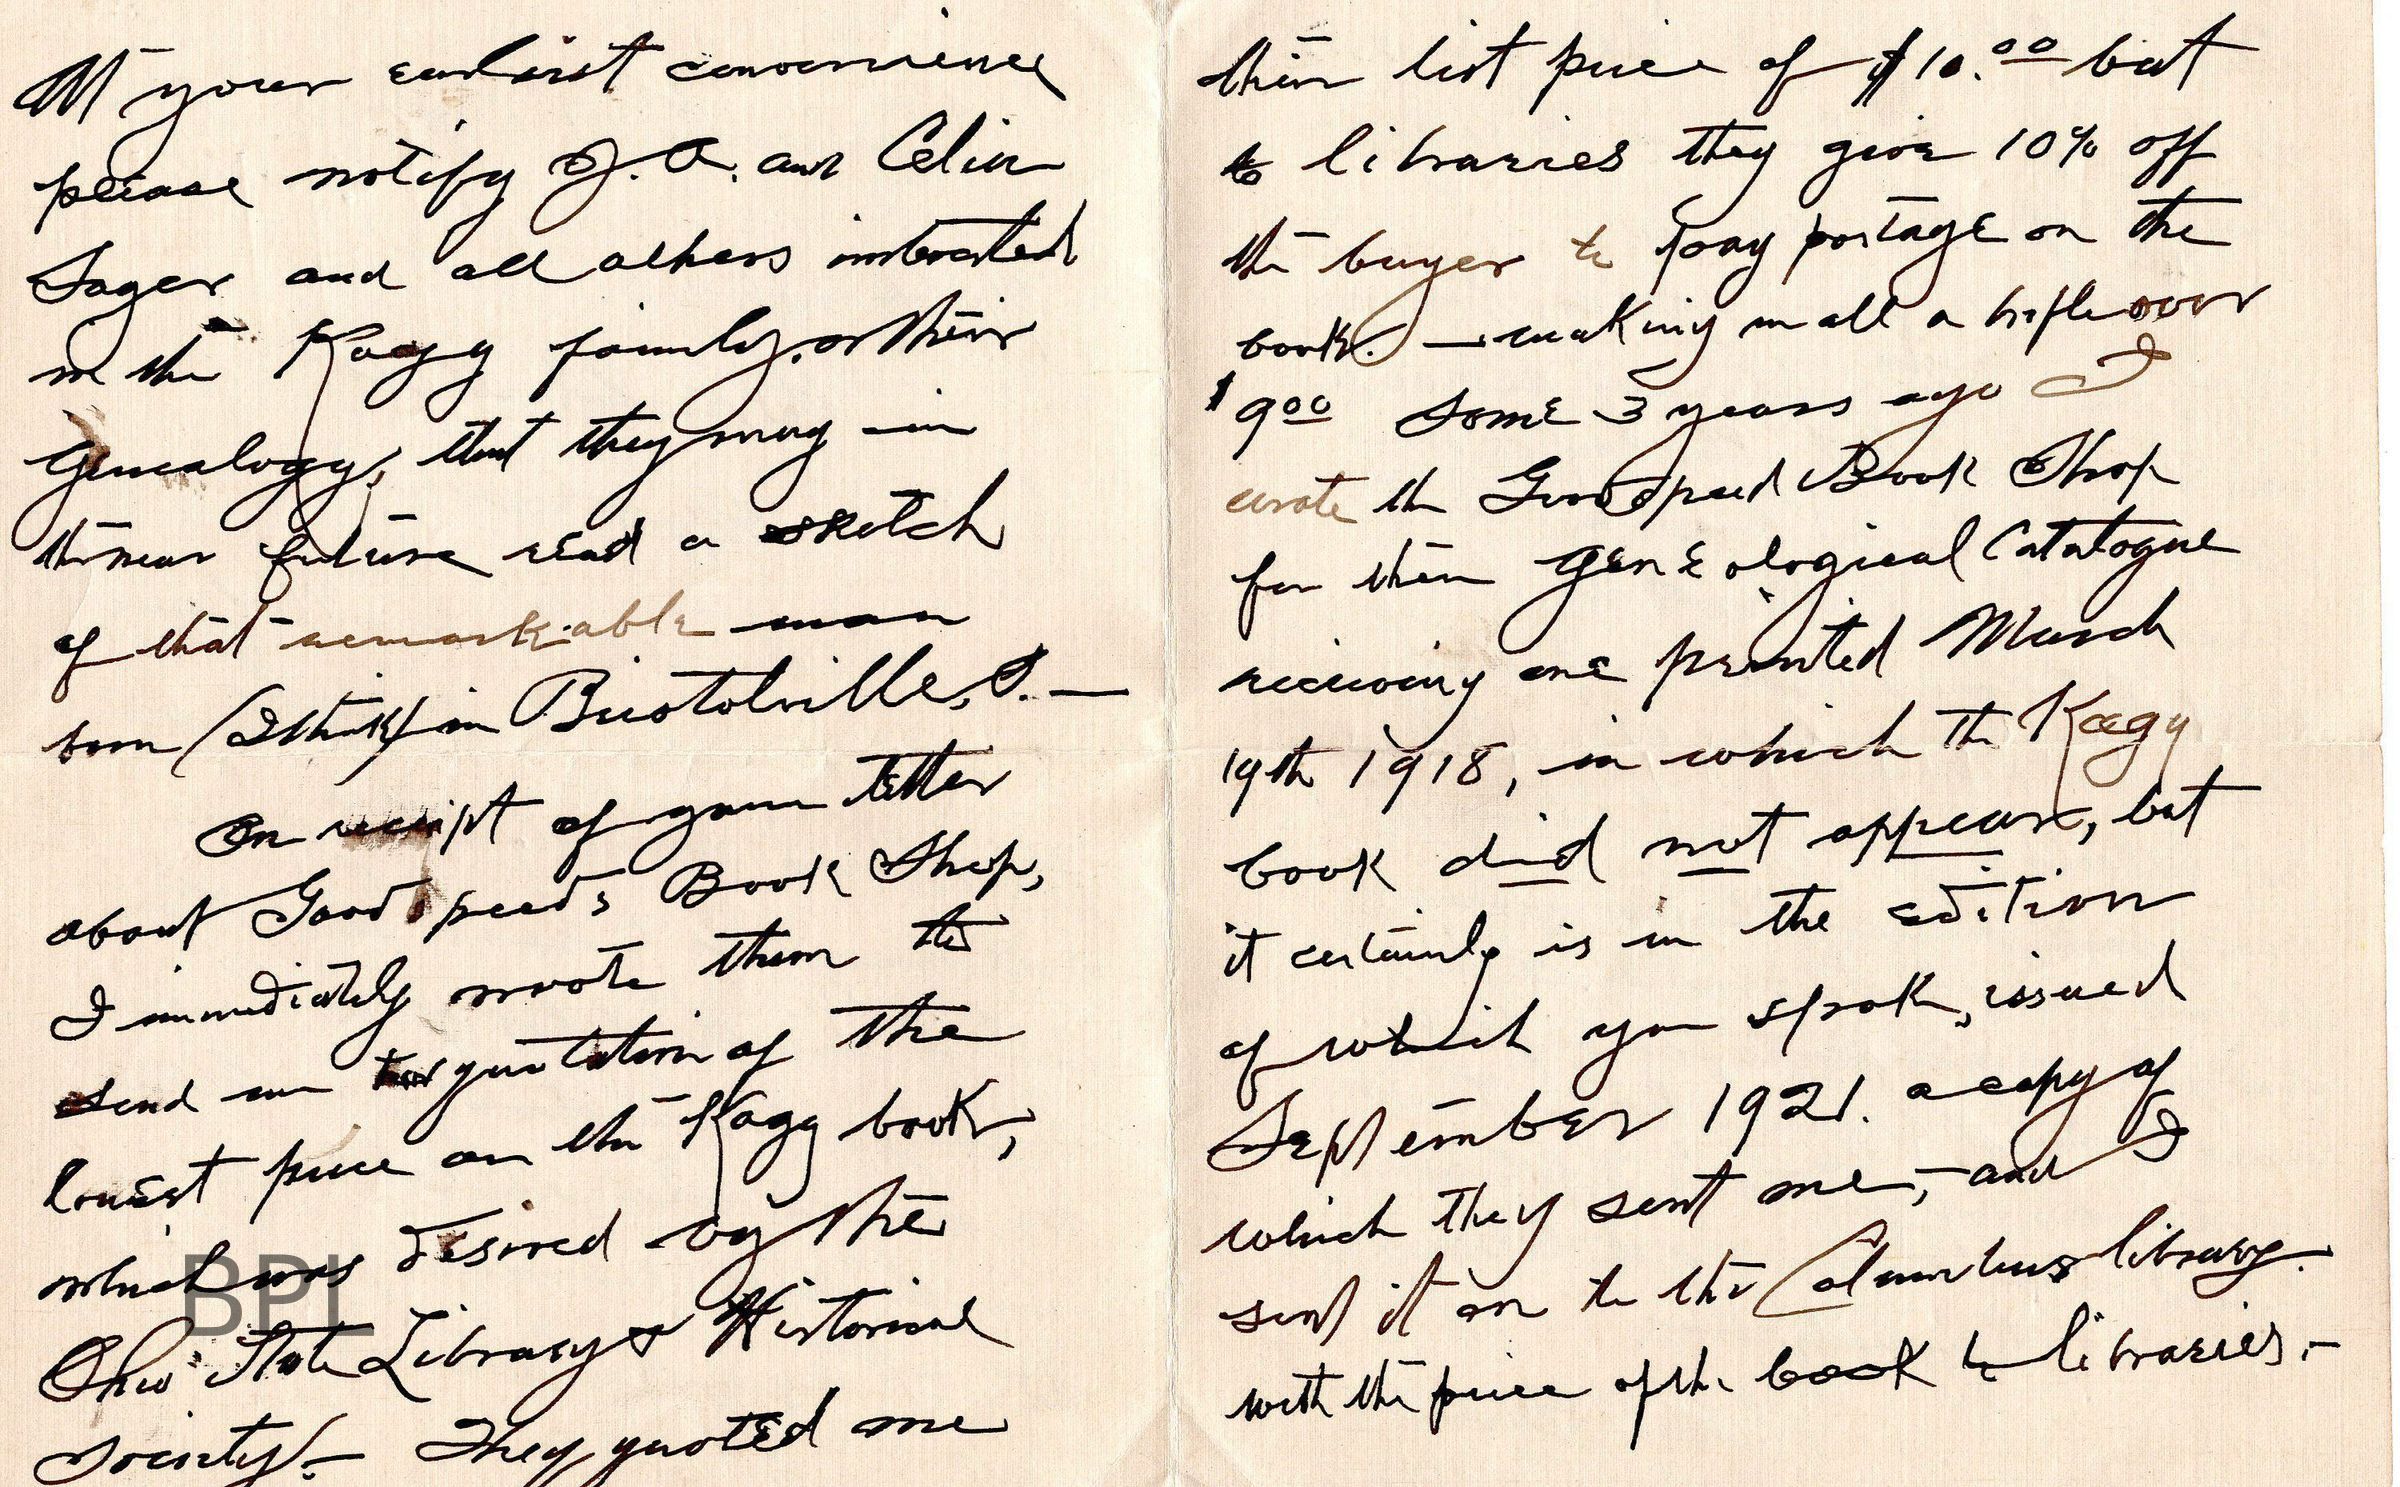 At your earliest convenience
please notify J. A. and Celia
Sager and all others interested
in the Kagy family, or their
genealogy, that they may in
the near future read a sketch
of that remarkable man
born (I think) in Bristolville, O. —
On receipt of your letter
about Goodspeed's Book Shop,
I immediately wrote them to
send me quotation of the
lowest price on the Kagy book,
which was desired by the
Ohio State Library & Historical
Society. — They quoted me
their list price of $10.00 but
to libraries they give 10% off
the buyer to pay postage on the
book. — making in all a trifle over
$9.00 Some 3 years ago I
wrote the Goodspeed Book Shop
for their Geneological Catalogue
receiving one printed March
19th 1918, in which the Kaegy
book did not appear, but
it certainly is in the edition
of which you spok, issued
September 1921. a copy of
which they sent me, – and I
sent it on to the Columbus library.
with the price of the book to libraries. –
BPL